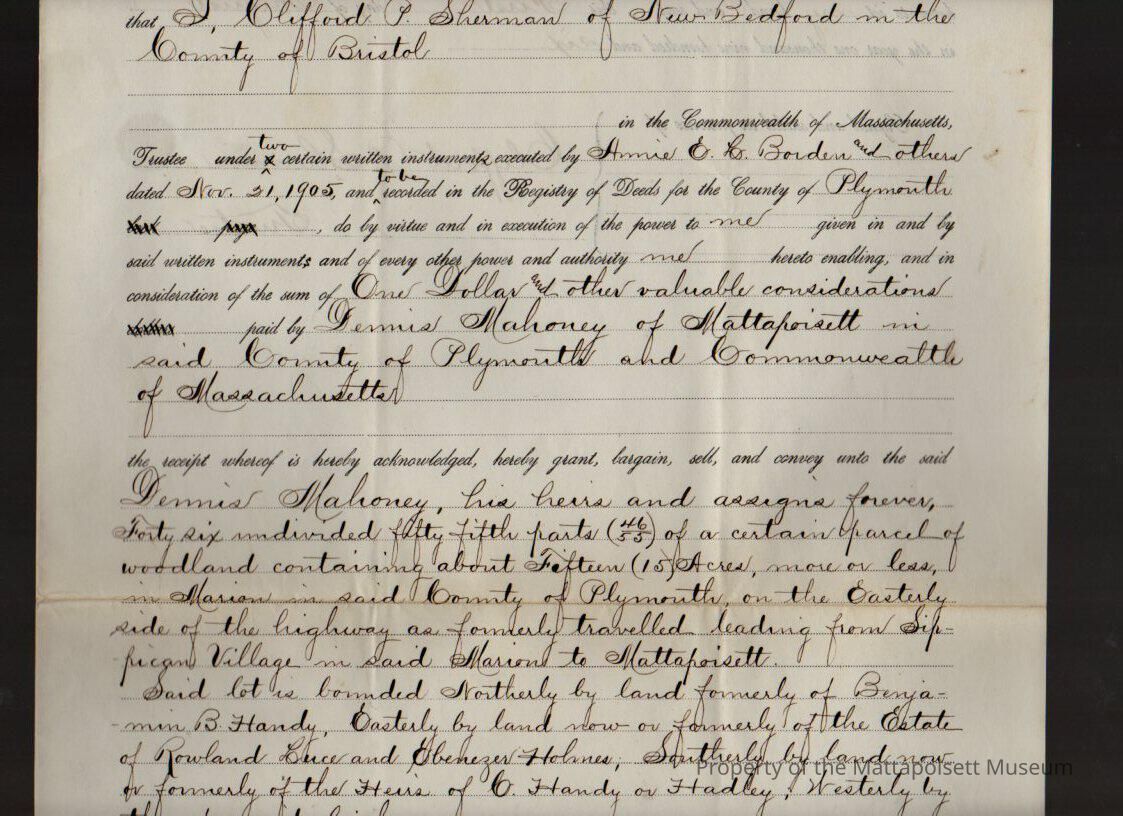 that I, Clifford P. Sherman of New Bedford in the
County of Bristol
in the Commonwealth of Massachusetts,
two
Trustee under certain written instruments executed by Annie E. C. Borden and others
to be
dated Nov. 21, 1905, and recorded in the Registry of Deeds for the County of Plymouth
, do by virtue and in execution of the power to me given in and by
said written instruments and of every other power and authority me hereto enabling, and in
consideration of the sum of One Dollar and other valuable considerations
paid by Dennis Mahoney of Mattapoisett in
said County of Plymouth and Commonwealth
of Massachusetts
the receipt whereof is hereby acknowledged, hereby grant, bargain, sell, and convey unto the said
Dennis Mahoney, his heirs and assigns forever,
Forty six undivided fifty fifth parts (46/55) of a certain parcel of
woodland containing about Fifteen (15) Acres, more or less,
in Marion in said County of Plymouth, on the Easterly
side of the highway as formerly travelled leading from Sip-
pican Village in said Marion to Mattapoisett.
Said lot is bounded Northerly by land formerly of Benja-
-min B. Handy, Easterly by land now or formerly of the Estate
of Rowland Luce and Ebenezer Holmes, Southerly by land now
or formerly of the Heirs of C. Handy or Hadley, Westerly by
Property of the Mattapoisett Museum